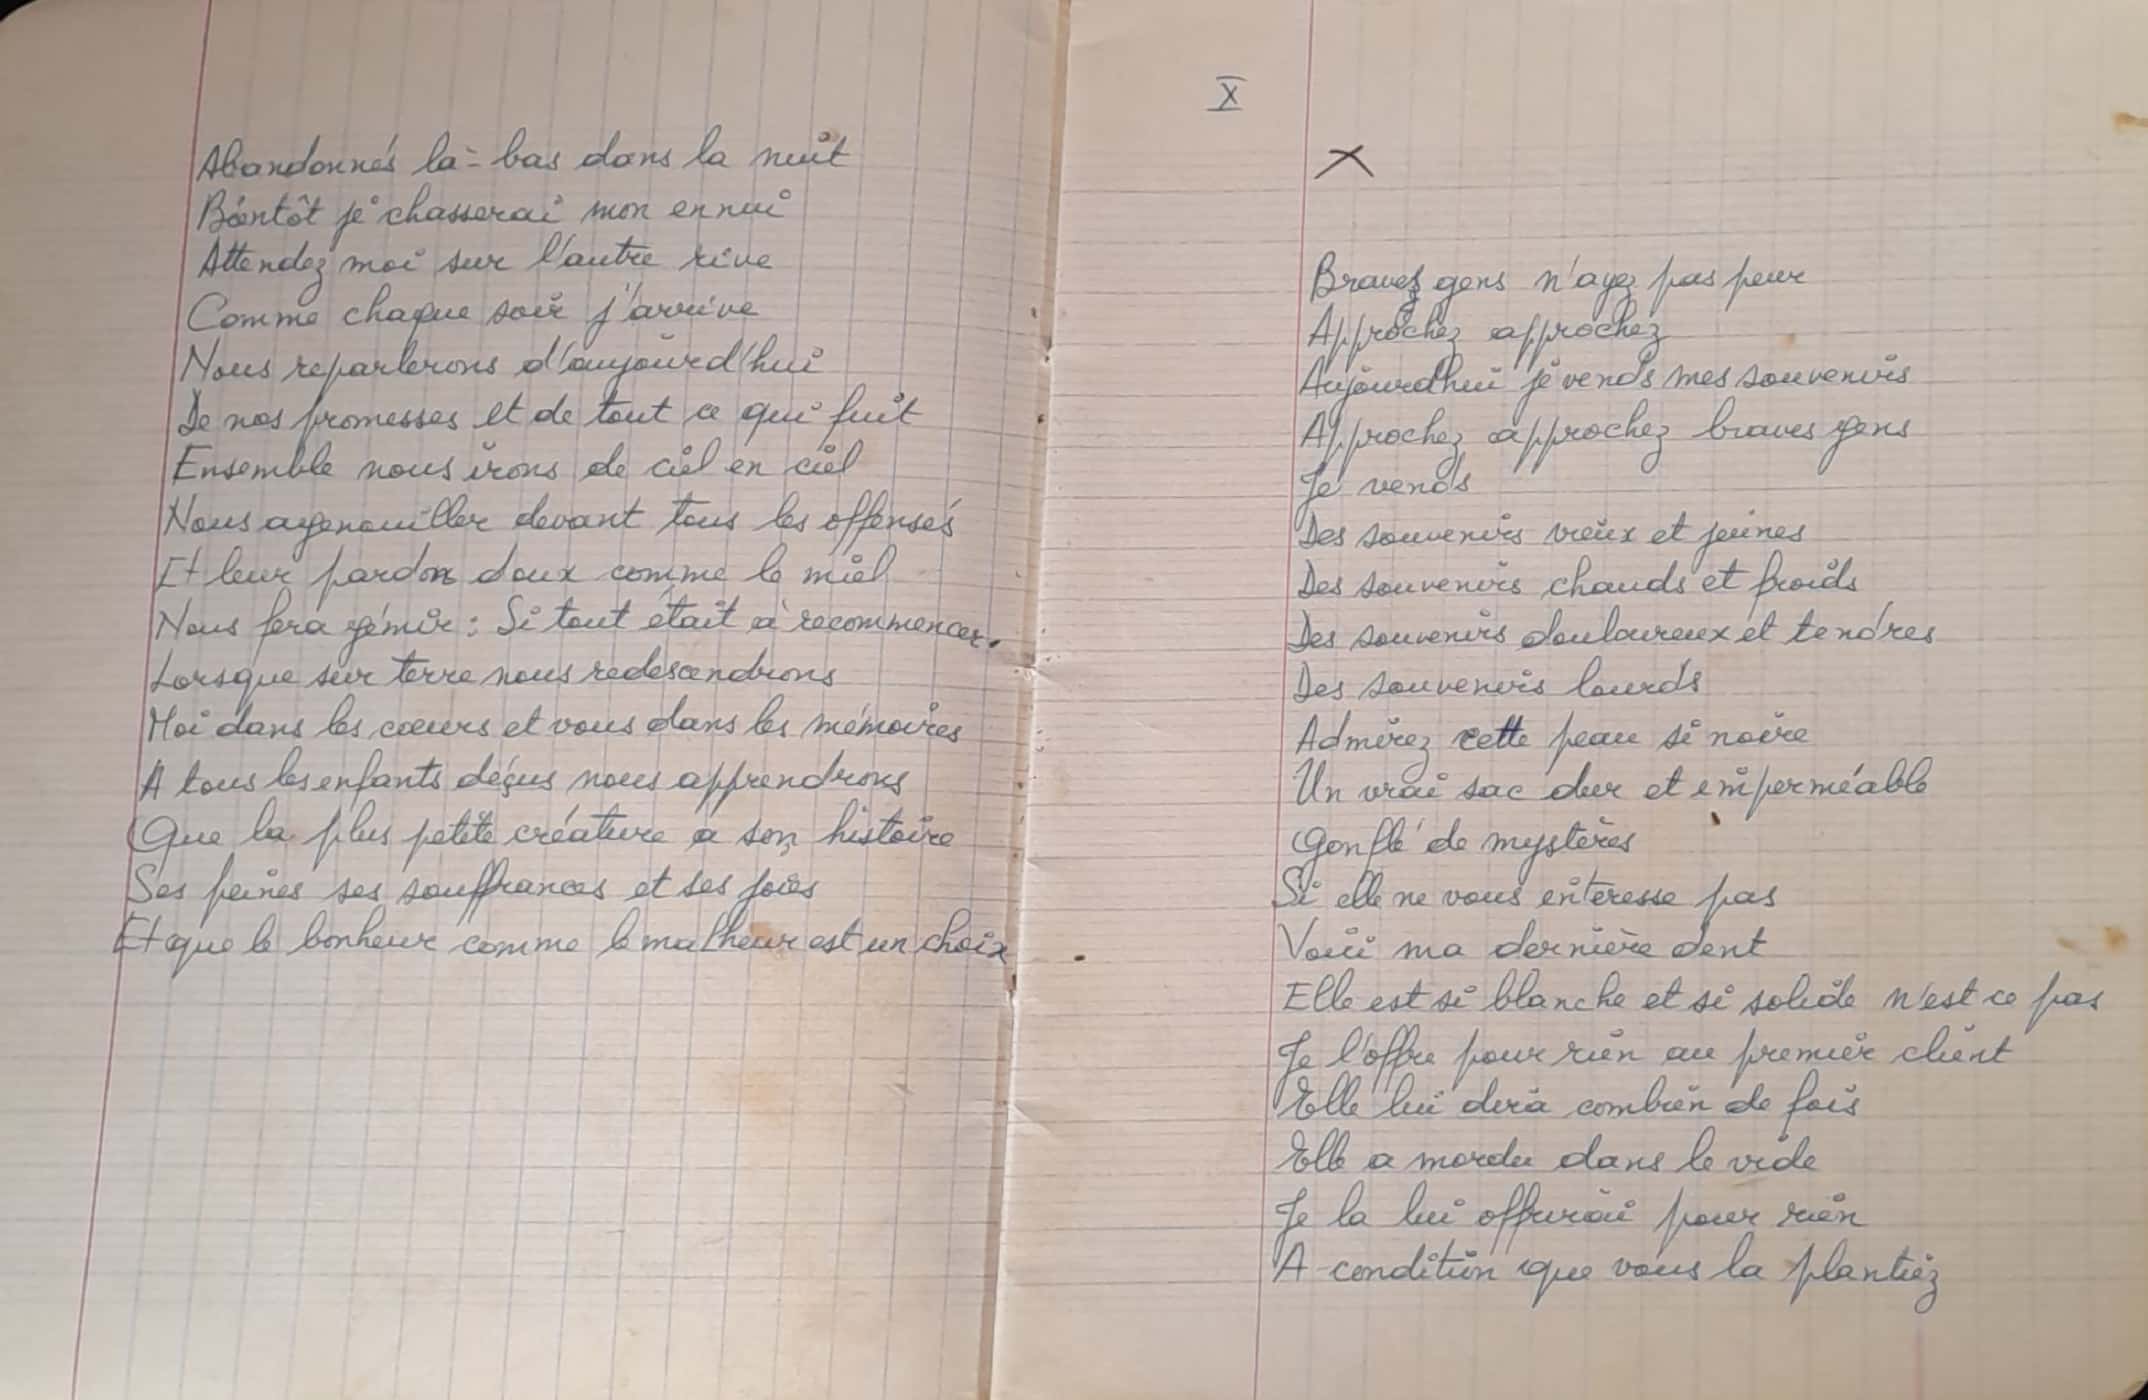 Abandonnés là-bas dans la nuit
Bientôt je chasserai mon ennui
Attendez moi sur l'autre rive
Comme chaque soir j'arrive
Nous reparlerons d'aujourd'hui
De nos promesses et de tout ce qui fuit
Ensemble nous irons de ciel en ciel
Nous agenouiller devant tous les offensés
Et leur pardon doux comme le miel
Nous fera gémir : Si tout était à recommencer.
Lorsque sur terre nous redescendrons
Moi dans les cœurs et vous dans les mémoires
A tous les enfants déçus nous apprendrons
Que la plus petite créature a son histoire
Ses peines ses souffrances et ses joies
Et que le bonheur comme le malheur est un choix
X
X
Braves gens n'ayez pas peur
Approchez approchez
Aujourd'hui je vends mes souvenirs
Approchez approchez braves gens
Je vends
Des souvenirs vieux et jeunes
Des souvenirs chauds et froids
Des souvenirs douloureux et tendres
Des souvenirs lourds
Admirez cette peau si noire
Un vrai sac dur et imperméable
Gonflé de mystères
Si elle ne vous interesse pas
Voici ma dernière dent
Elle est si blanche et si solide n'est ce pas
Je l'offre pour rien au premier client
Elle lui dira combien de fois
Elle a mordu dans le vide
Je la lui offrirai pour rien
A condition que vous la plantiez